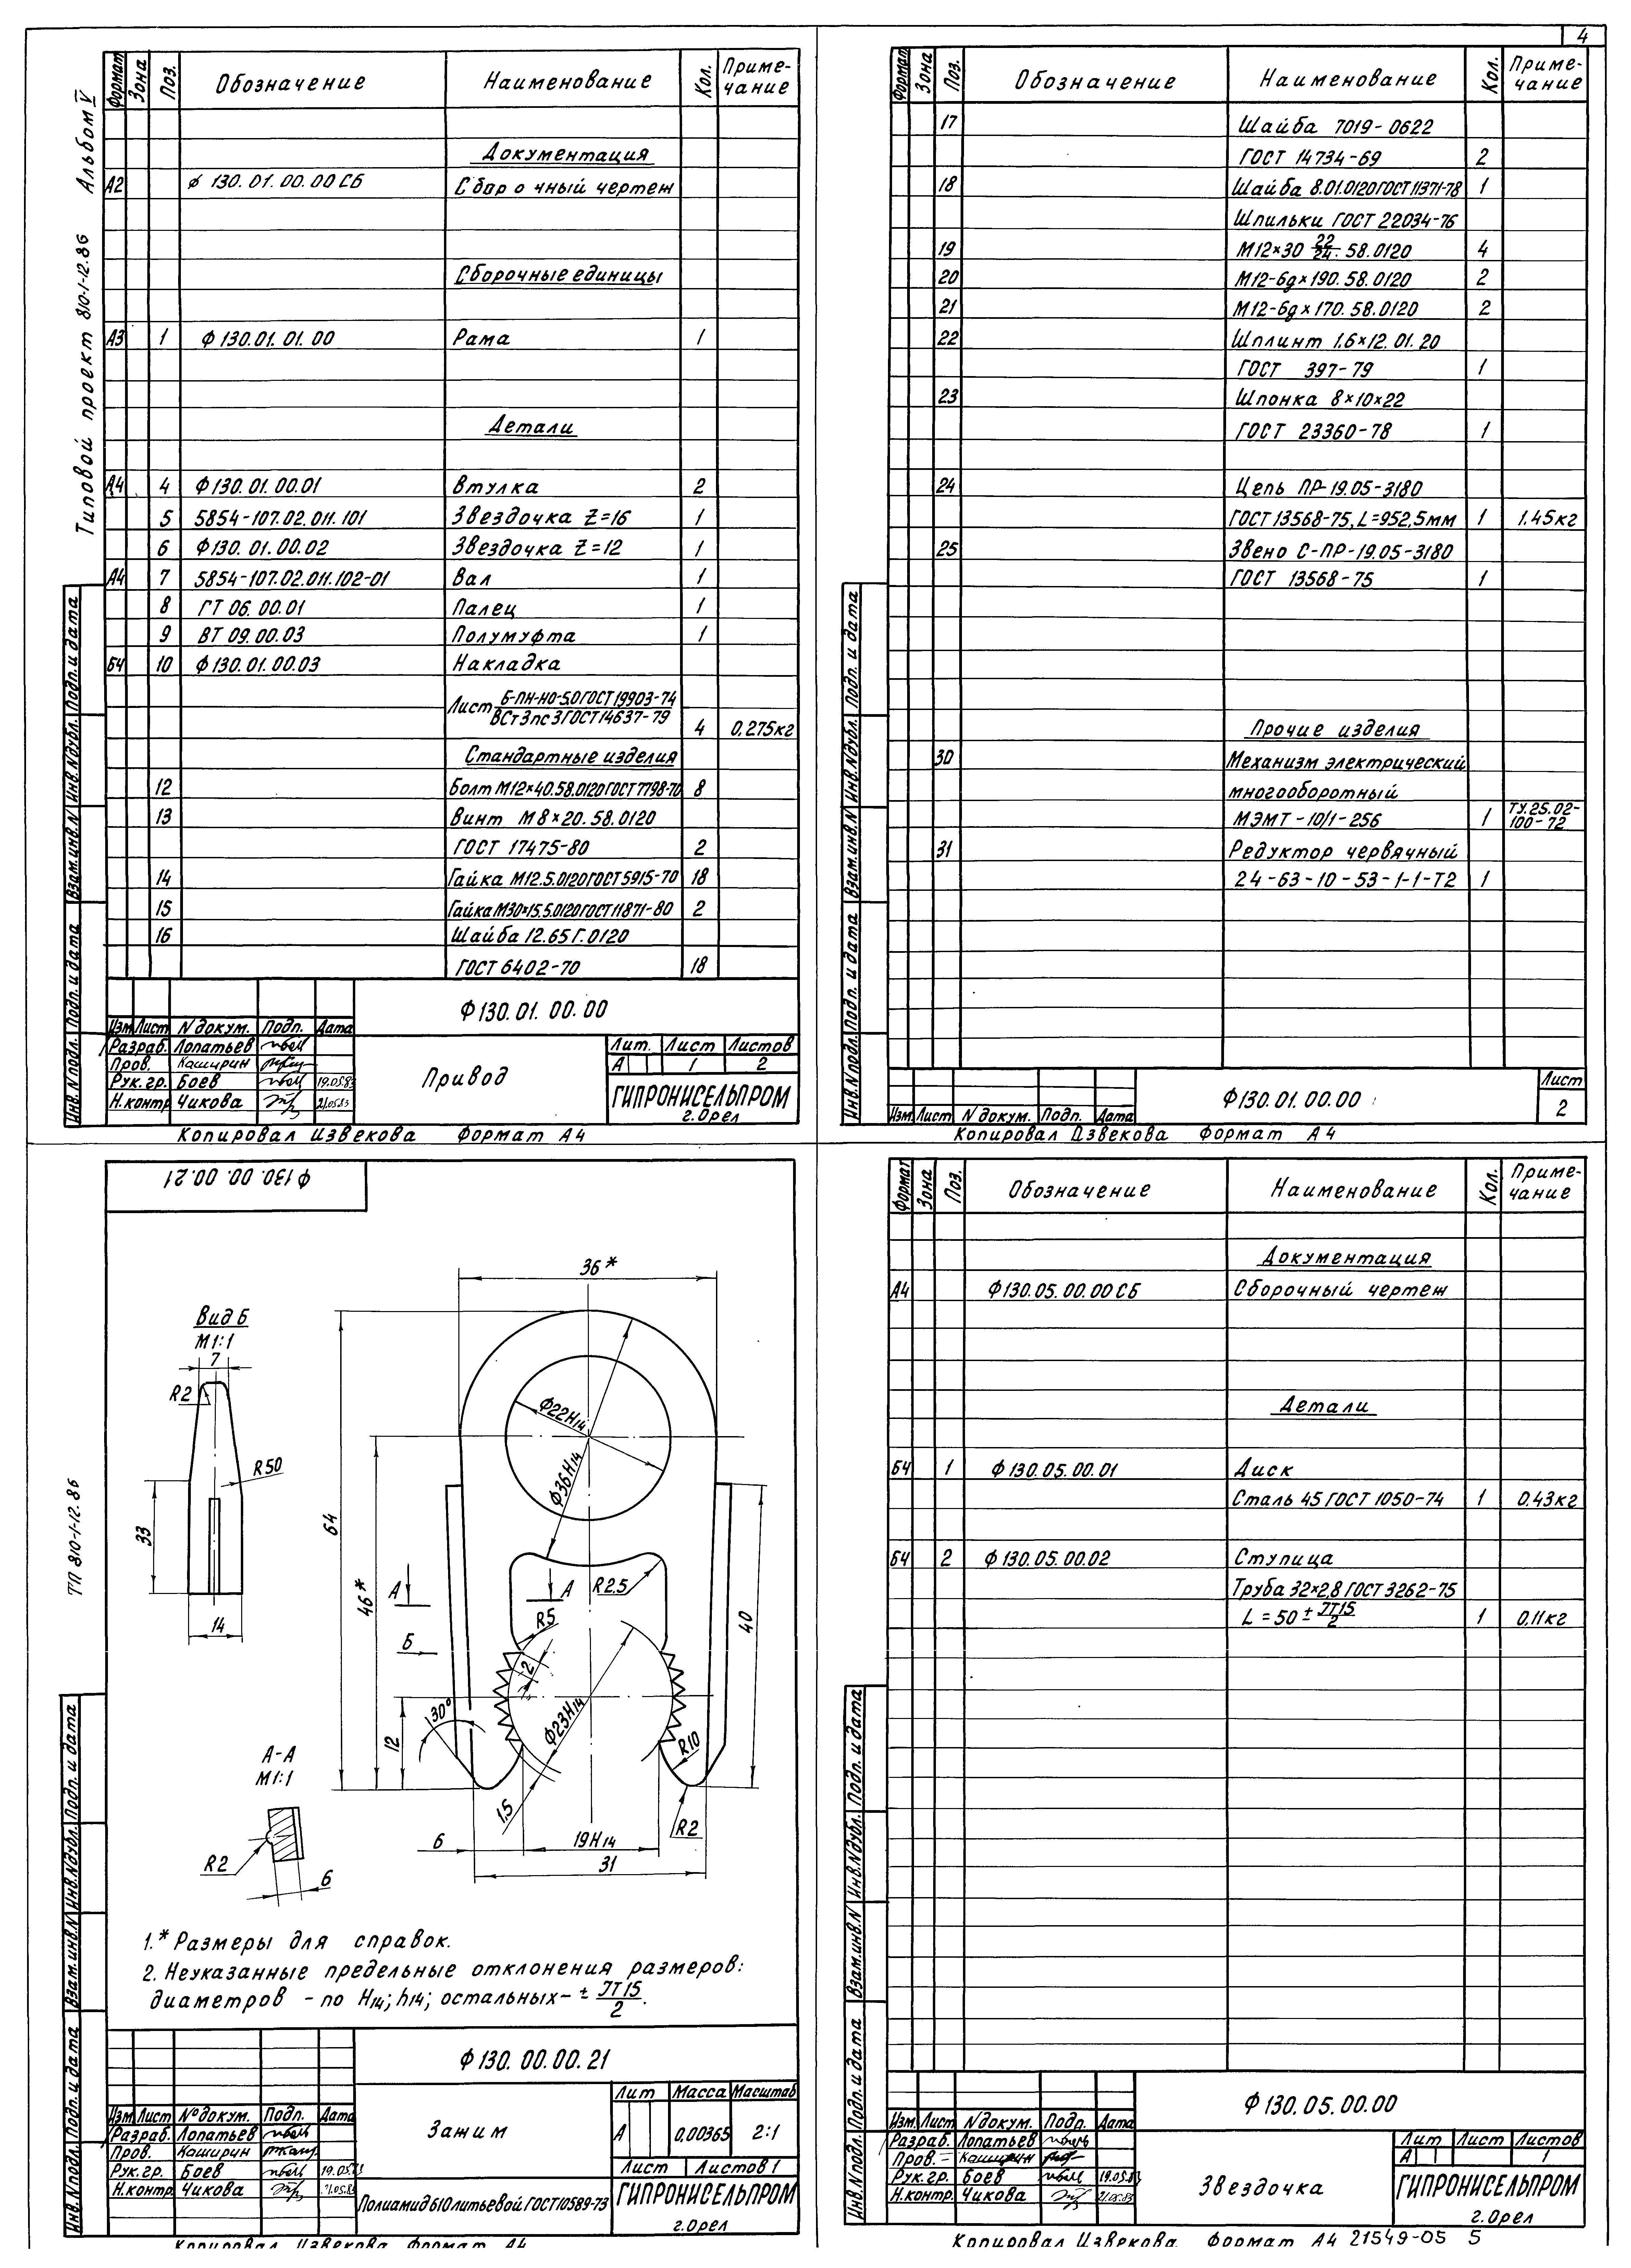 4
Типовой проект 810-1-12.86 Альбом V
Формат Зона Поз. Обозначение Наименование Кол. Приме-чание
Документация
А2 Ф 130.01.00.00 СБ Сборочный чертеж
Сборочные единицы
А3 1 Ф 130.01.01.00 Рама 1
Детали
А4 4 Ф130.01.00.01 Втулка 2
5 5854-107.02.011.101 Звездочка Z=16 1
6 Ф130.01.00.02 Звездочка Z=12 1
А4 7 5854-107.02.011.102-01 Вал 1
8 ГТ 06.00.01 Палец 1
9 ВТ 09.00.03 Полумуфта 1
Б4 10 Ф130.01.00.03 Накладка
Лист Б-ПН-НО-5.0 ГОСТ 19903-74
ВСт3пс3 ГОСТ 14637-79 4 0.275кг
Стандартные изделия
12 Болт М12×40.58.0120 ГОСТ 7798-70 8
13 Винт М8×20.58.0120
ГОСТ 17475-80 2
14 Гайка М12.5.0120 ГОСТ 5915-70 18
15 Гайка М30×1.5.5.0120 ГОСТ 11871-80 2
16 Шайба 12.65Г.0120
ГОСТ 6402-70 18
Ф130.01.00.00
Изм Лист N докум. Подп. Дата
Разраб. Лопатьев
Пров. Каширин
Рук.гр. Боев 19.05.83
Н.контр Чикова 21.05.83
Привод
Лит. Лист Листов
А 1 2
ГИПРОНИСЕЛЬПРОМ
г.Орел
Инв.N подл. Подп. и дата Взам.инв.N Инв.N дубл. Подп. и дата
Копировал Извекова Формат А4
Формат Зона Поз. Обозначение Наименование Кол. Приме-чание
17 Шайба 7019-0622
ГОСТ 14734-69 2
18 Шайба 8.01.0120 ГОСТ 11371-78 1
Шпильки ГОСТ 22034-76
19 М12×30 22/24 .58.0120 4
20 М12-6g×190.58.0120 2
21 М12-6g×170.58.0120 2
22 Шплинт 1.6×12.01.20
ГОСТ 397-79 1
23 Шпонка 8×10×22
ГОСТ 23360-78 1
24 Цепь ПР-19.05-3180
ГОСТ 13568-75, L=952,5мм 1 1.45кг
25 Звено С-ПР-19.05-3180
ГОСТ 13568-75 1
Прочие изделия
30 Механизм электрический
многооборотный
МЭМТ-10/1-256 1 ТУ.25.02-100-72
31 Редуктор червячный
2ч-63-10-53-1-1-Т2 1
Ф130.01.00.00
Лист
2
Изм Лист N докум. Подп. Дата
Инв.N подл. Подп. и дата Взам.инв.N Инв.N дубл. Подп. и дата
Копировал Извекова Формат А4
Ф130.00.00.21
ТП 810-1-12.86
Вид Б
М1:1
7
R2
R50
33
14
36*
Ф22H14
Ф36H14
64
46*
А А
R2.5
R5
Б
2
40
30°
12
Ф23H14
R10
1.5
R2
6 19H14
31
А-А
М1:1
R2
6
1.* Размеры для справок.
2. Неуказанные предельные отклонения размеров:
диаметров - по H14; h14; остальных - ± JT15/2.
Ф130.00.00.21
Изм Лист № докум. Подп. Дата
Разраб. Лопатьев
Пров. Каширин
Рук.гр. Боев 19.05.83
Н.контр. Чикова 21.05.83
Зажим
Лит Масса Масштаб
А 0,00365 2:1
Лист Листов 1
Полиамид 610 литьевой ГОСТ 10589-73
ГИПРОНИСЕЛЬПРОМ
г.Орел
Инв.N подл. Подп. и дата Взам.инв.N Инв.N дубл. Подп. и дата
Копировал Извекова Формат А4
Формат Зона Поз. Обозначение Наименование Кол. Приме-чание
Документация
А4 Ф130.05.00.00 СБ Сборочный чертеж
Детали
Б4 1 Ф130.05.00.01 Диск
Сталь 45 ГОСТ 1050-74 1 0.43кг
Б4 2 Ф130.05.00.02 Ступица
Труба 32×2,8 ГОСТ 3262-75
L=50 ± JT15/2 1 0,11кг
Ф130.05.00.00
Изм. Лист N докум. Подп. Дата
Разраб. Лопатьев
Пров. Каширин
Рук.гр. Боев 19.05.83
Н.контр. Чикова 21.05.83
Звездочка
Лит Лист Листов
А 1
ГИПРОНИСЕЛЬПРОМ
г.Орел
Инв.N подл. Подп. и дата Взам.инв.N Инв.N дубл. Подп. и дата
Копировал Извекова Формат А4 21549-05 5